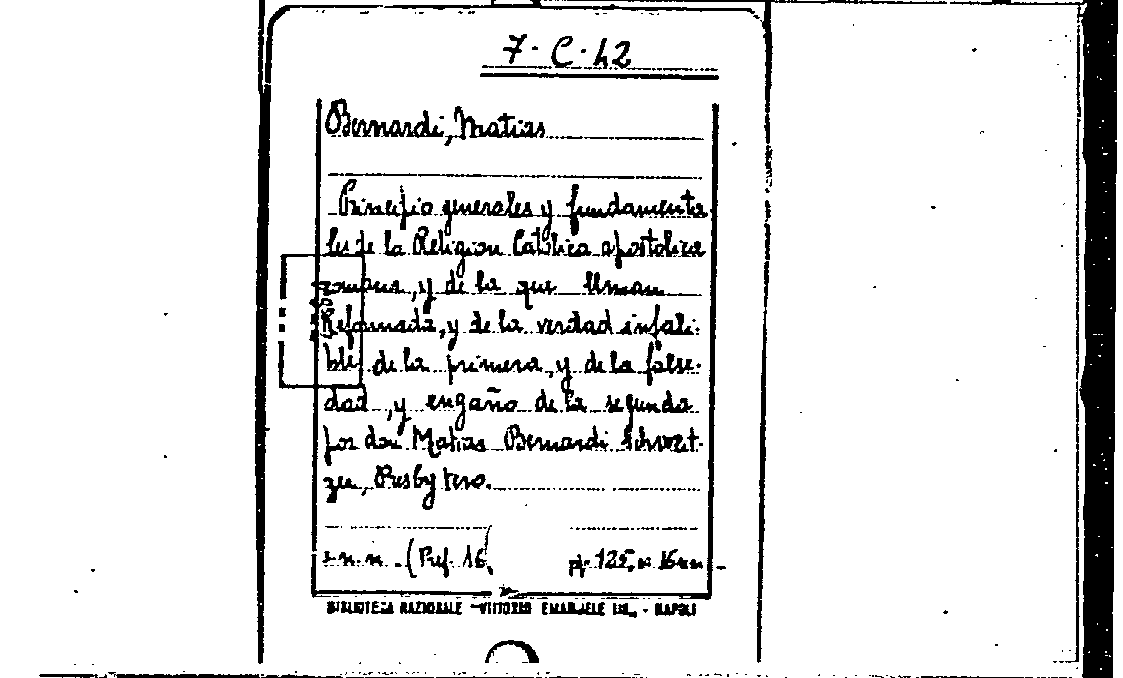 7. C. 42
Bernardi, Matias
Principio generales y fundamenta
les de la Religion Catolica apostolica
romana, y de la que llman
Reformada, y de la verdad infali-
ble de la primera, y de la false-
dad, y engaño de la segunda
por don Matias Bernardi Schwert-
zen, Presbytero.
s. n. n. - (Pref. 16 p. 125,
BIBLIOTECA NAZIONALE - VITTORIO EMANUELE III., - NAPOLI